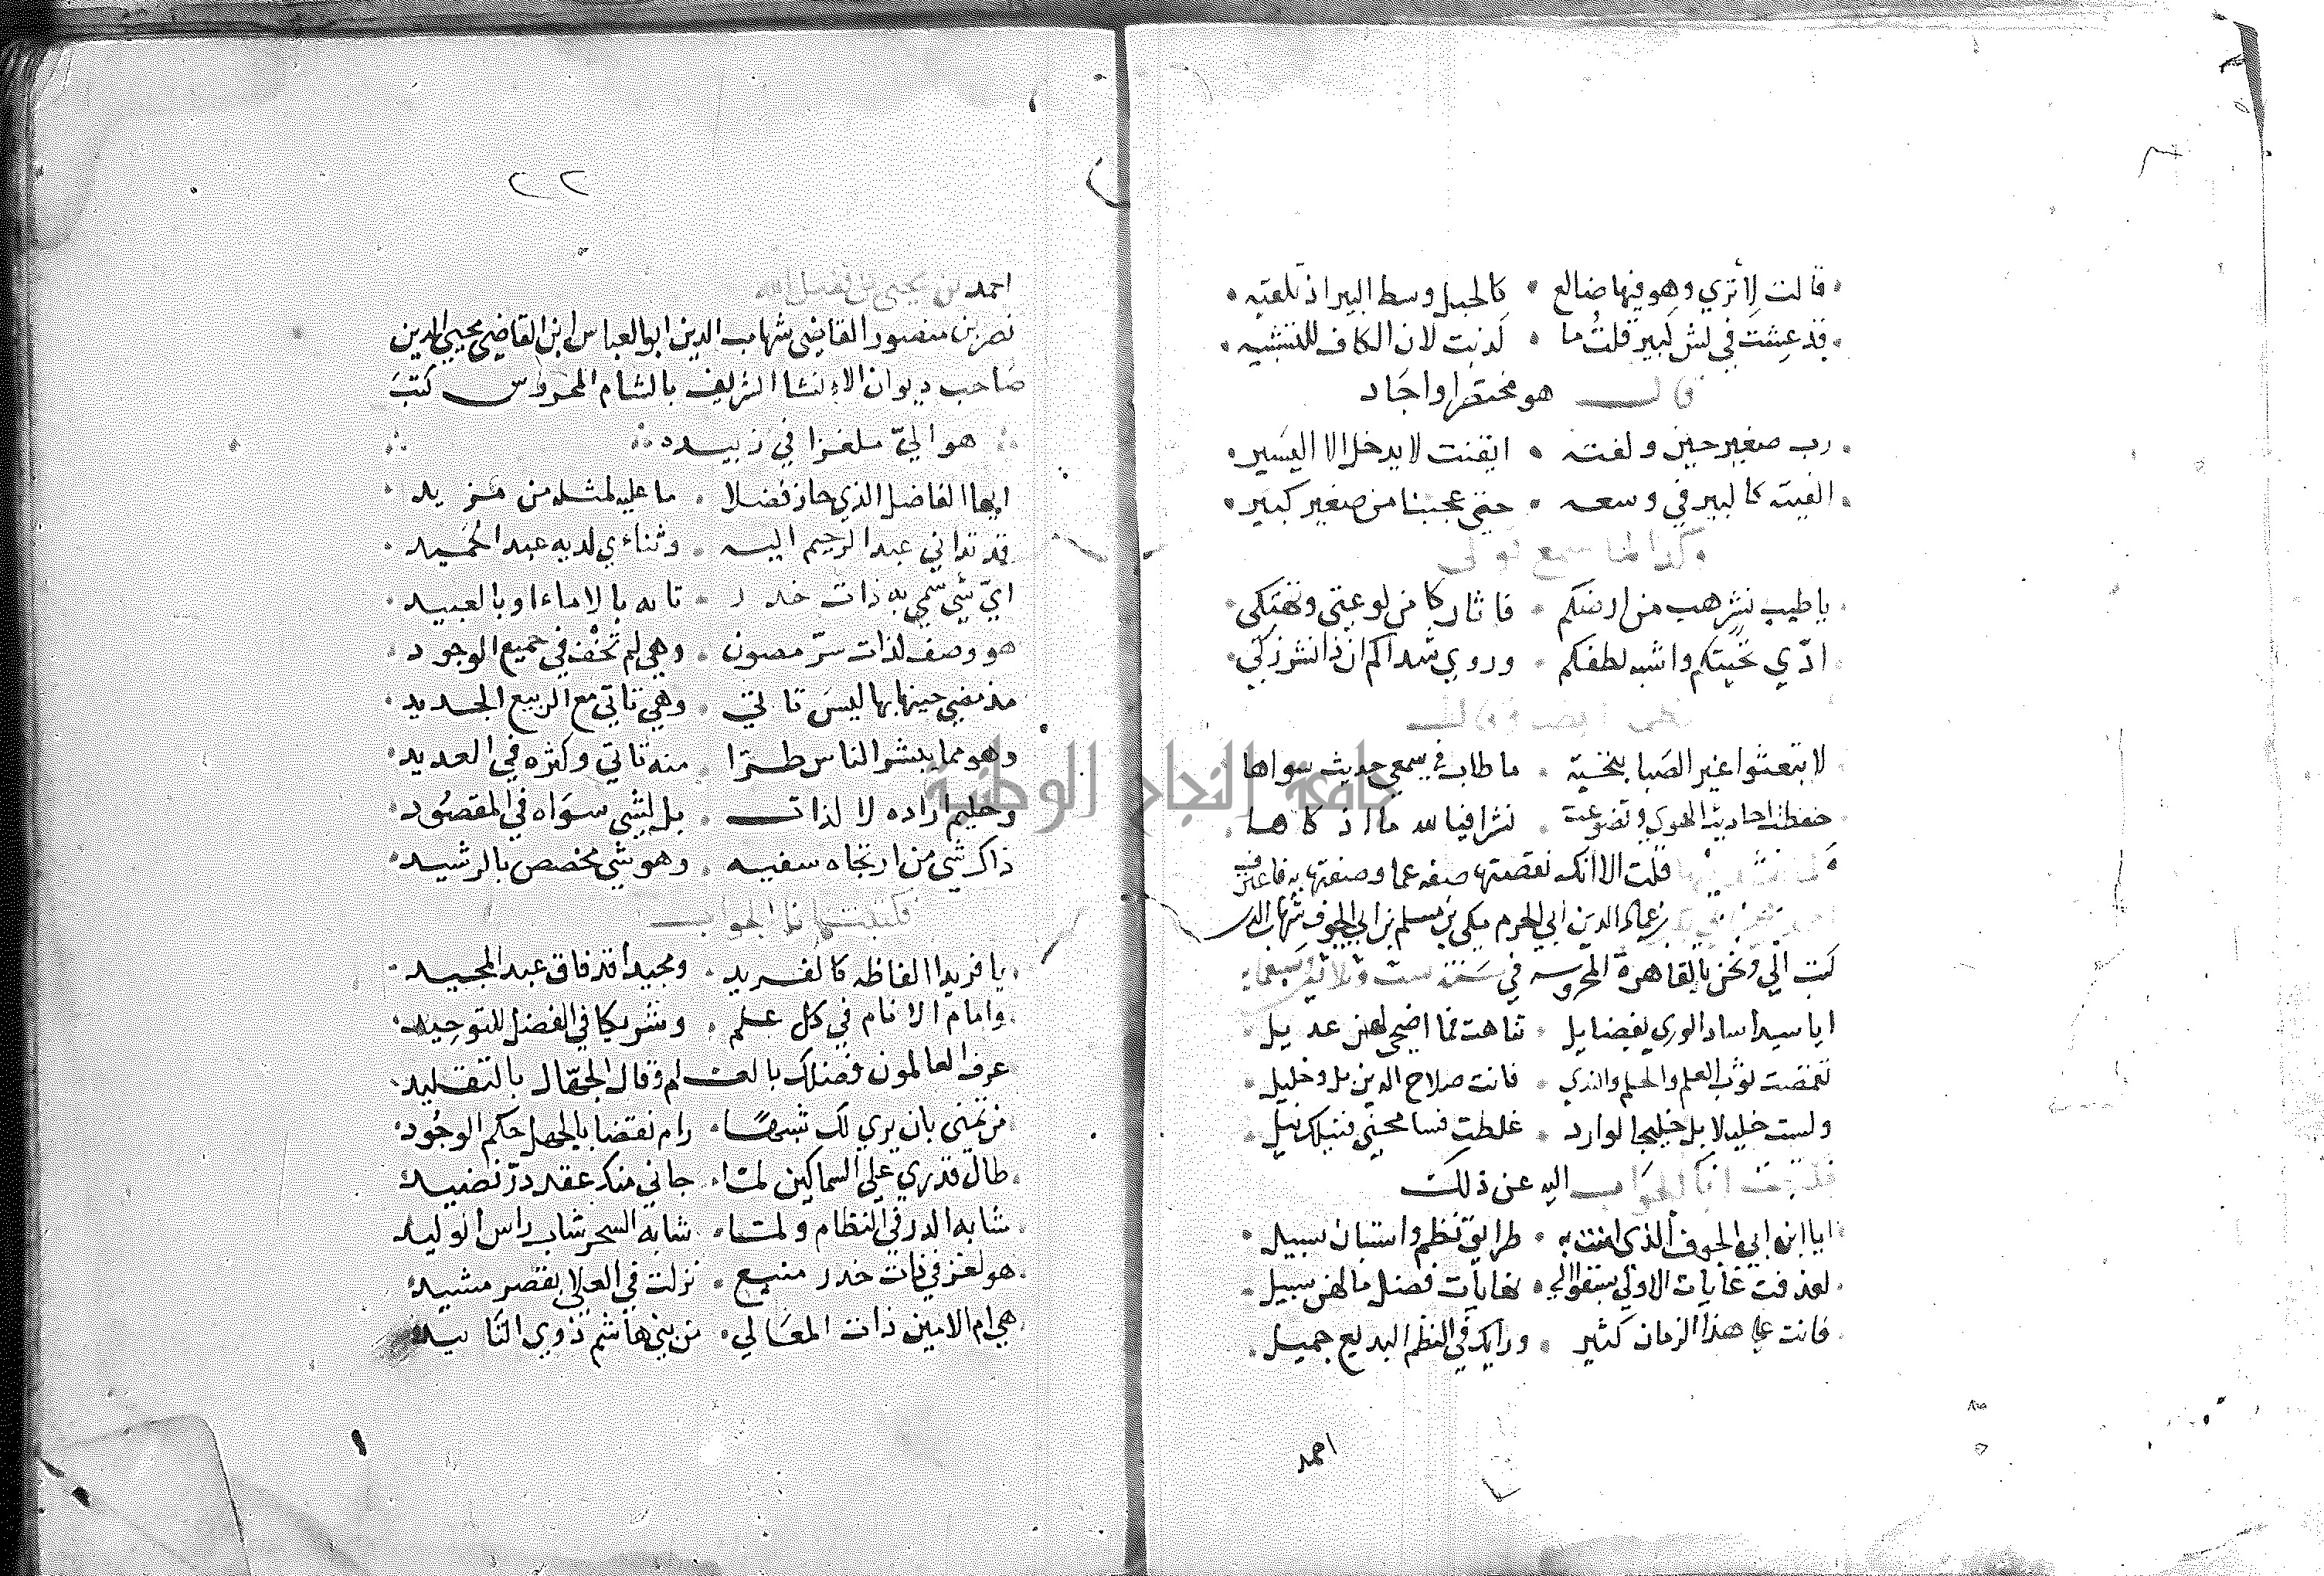 قالت لأتري وهو فيها ضائع • كالحبل وسط البير اذ تلقيه
قد عشت في لش كبير قلت ما • كذبت لان الكاف للتشبيه
قال هو مختصرا واجاد
رب صغير حين ولفته • ايقنت لا يدخل الا اليسير
الفيته كالبير في وسعه • حتى عجبنا من صغير كبير
وكذا لما سمع قولي
يا طيب نشر هب من ارضكم • فاثار كامن لوعتي وتهتكي
ادّي تحيتكم واشبه لطفكم • وروي شذاكم ان ذا نشر زكي
لا تبعثوا غير الصبا بتحية • ما طاب في سمعي حديث سواها
حفظت احاديث الهوي وتضوعت • نشرا فيالله ما اذكاها
قلت الا انك نقصتها صفه عما وصفتها به فاعترف
بن عماد الدين ابي الحرم مكي بن مسلم بن ابي الخوف شهاب الدين
كتب الّي ونحن بالقاهرة المحروسه في سنة ست وثلاثين وسبعماية
ايا سيدا ساد الوري بفضايل • تناهت فما اضحي لهن عديل
تقمصت ثوب العلم والحلم والندي • فانت صلاح الدين بل وخليل
ولست خليلا بل خليجا لوارد • غلطت فسامحني فنيلك نيل
فكتبت انا الجواب اليه عن ذلك
ايا ابن ابي الخوف الذي امنت به • طرايق نظم واستبان سبيل
لقد فت غايات الاولي سبقوا الي • نهايات فضل ما لهن سبيل
فانت علي هذا الزمان كثير • ورايك في النظم البديع جميل
احمد
٢٢
احمد بن يحيى بن فضل الله
نصر بن منصور القاضي شهاب الدين ابو العباس ابن القاضي محيي الدين
صاحب ديوان الانشا الشريف بالشام المحروس كتب
هو اليّ ملغزا في زبيده
ايها الفاضل الذي حاز فضلا • ما عليه لمثله من مزيد
قد تداني عبد الرحيم اليه • وثناءي لديه عبد الحميد
ايّ شي سمي به ذات خدر • تايه بالاماء او بالعبيد
هو وصف لذات سرّ مصون • وهي لم تخف في جميع الوجود
مذ مضي حينها بها ليس تاتي • وهي تاتي مع الربيع الجديد
وهو مما يبشر الناس طرا • منه تاتي وكثره في العديد
وحليم اراده لا لذات • بل لشي سواه في المقصود
ذاكر شي من ارتجاه سفيه • وهو شي مخصص بالرشيد
فكتبت انا الجواب
يا فريدا الفاظه كالفريد • ومجيدا قد فاق عبد المجيد
وامام الانام في كل علم • وشريكا في الفضل للتوحيد
عرف العالمون فضلك بالعلم وقال الجهّال بالتقليد
من تمنى بان يري لك شبها • رام نقضا بالجهل حكم الوجود
طال قدري علي السماكين لما • جاني منك عقد درّ نضيد
شابه الدر في النظام ولما • شابه السحر شاب راس الوليد
هو لغز في ذات خدر منيع • نزلت في العلا بقصر مشيد
هي ام الامين ذات المعالي • من بني هاشم ذوي التاييد
جامعة النجاح الوطنية